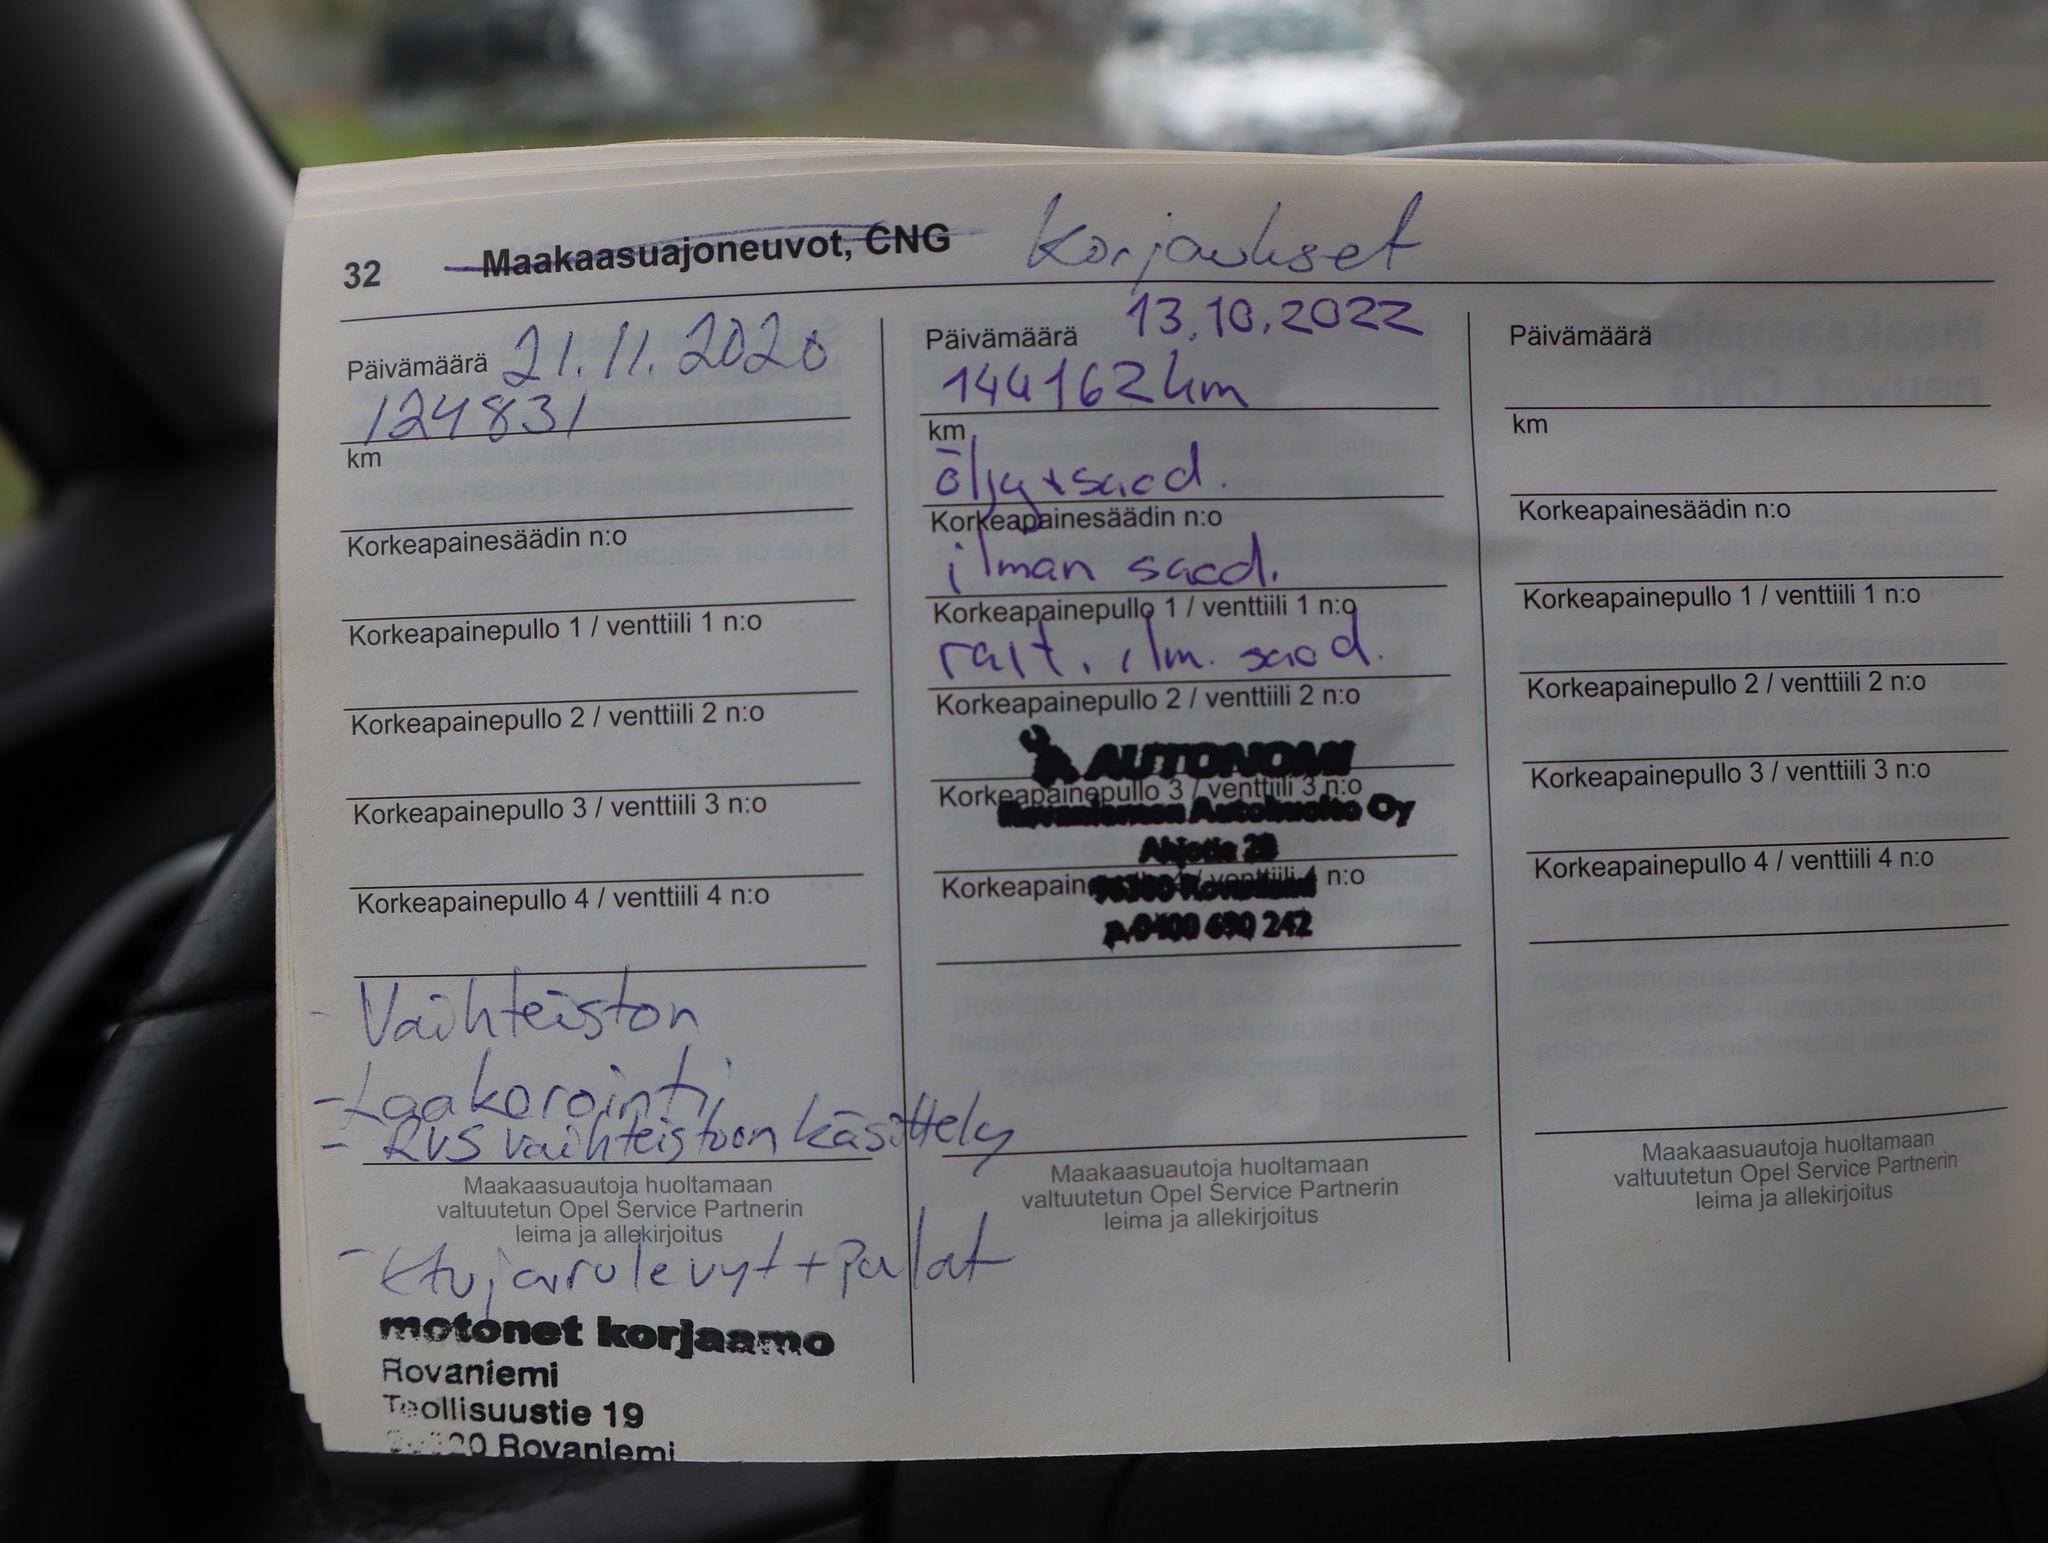 32 Maakaasuajoneuvot, CNG Korjaukset
Päivämäärä 21.11.2020
124831
km
Korkeapainesäädin n:o
Korkeapainepullo 1 / venttiili 1 n:o
Korkeapainepullo 2 / venttiili 2 n:o
Korkeapainepullo 3 / venttiili 3 n:o
Korkeapainepullo 4 / venttiili 4 n:o
- Vaihteiston
- Laakorointi
- RVS vaihteistoon käsittely
Maakaasuautoja huoltamaan
valtuutetun Opel Service Partnerin
leima ja allekirjoitus
- Etujarrulevyt + Palat
motonet korjaamo
Rovaniemi
Teollisuustie 19
Rovaniemi
Päivämäärä 13.10.2022
144162 km
km
öljy + suod.
Korkeapainesäädin n:o
ilman suod.
Korkeapainepullo 1 / venttiili 1 n:o
rait. ilm. suod.
Korkeapainepullo 2 / venttiili 2 n:o
AUTONOMI
Korkeapainepullo 3 / venttiili 3 n:o
Rovaniemen Autohuolto Oy
Ahjotie 28
Korkeapainepullo 4 / venttiili 4 n:o
96300 Rovaniemi
p. 0400 690 242
Maakaasuautoja huoltamaan
valtuutetun Opel Service Partnerin
leima ja allekirjoitus
Päivämäärä
km
Korkeapainesäädin n:o
Korkeapainepullo 1 / venttiili 1 n:o
Korkeapainepullo 2 / venttiili 2 n:o
Korkeapainepullo 3 / venttiili 3 n:o
Korkeapainepullo 4 / venttiili 4 n:o
Maakaasuautoja huoltamaan
valtuutetun Opel Service Partnerin
leima ja allekirjoitus